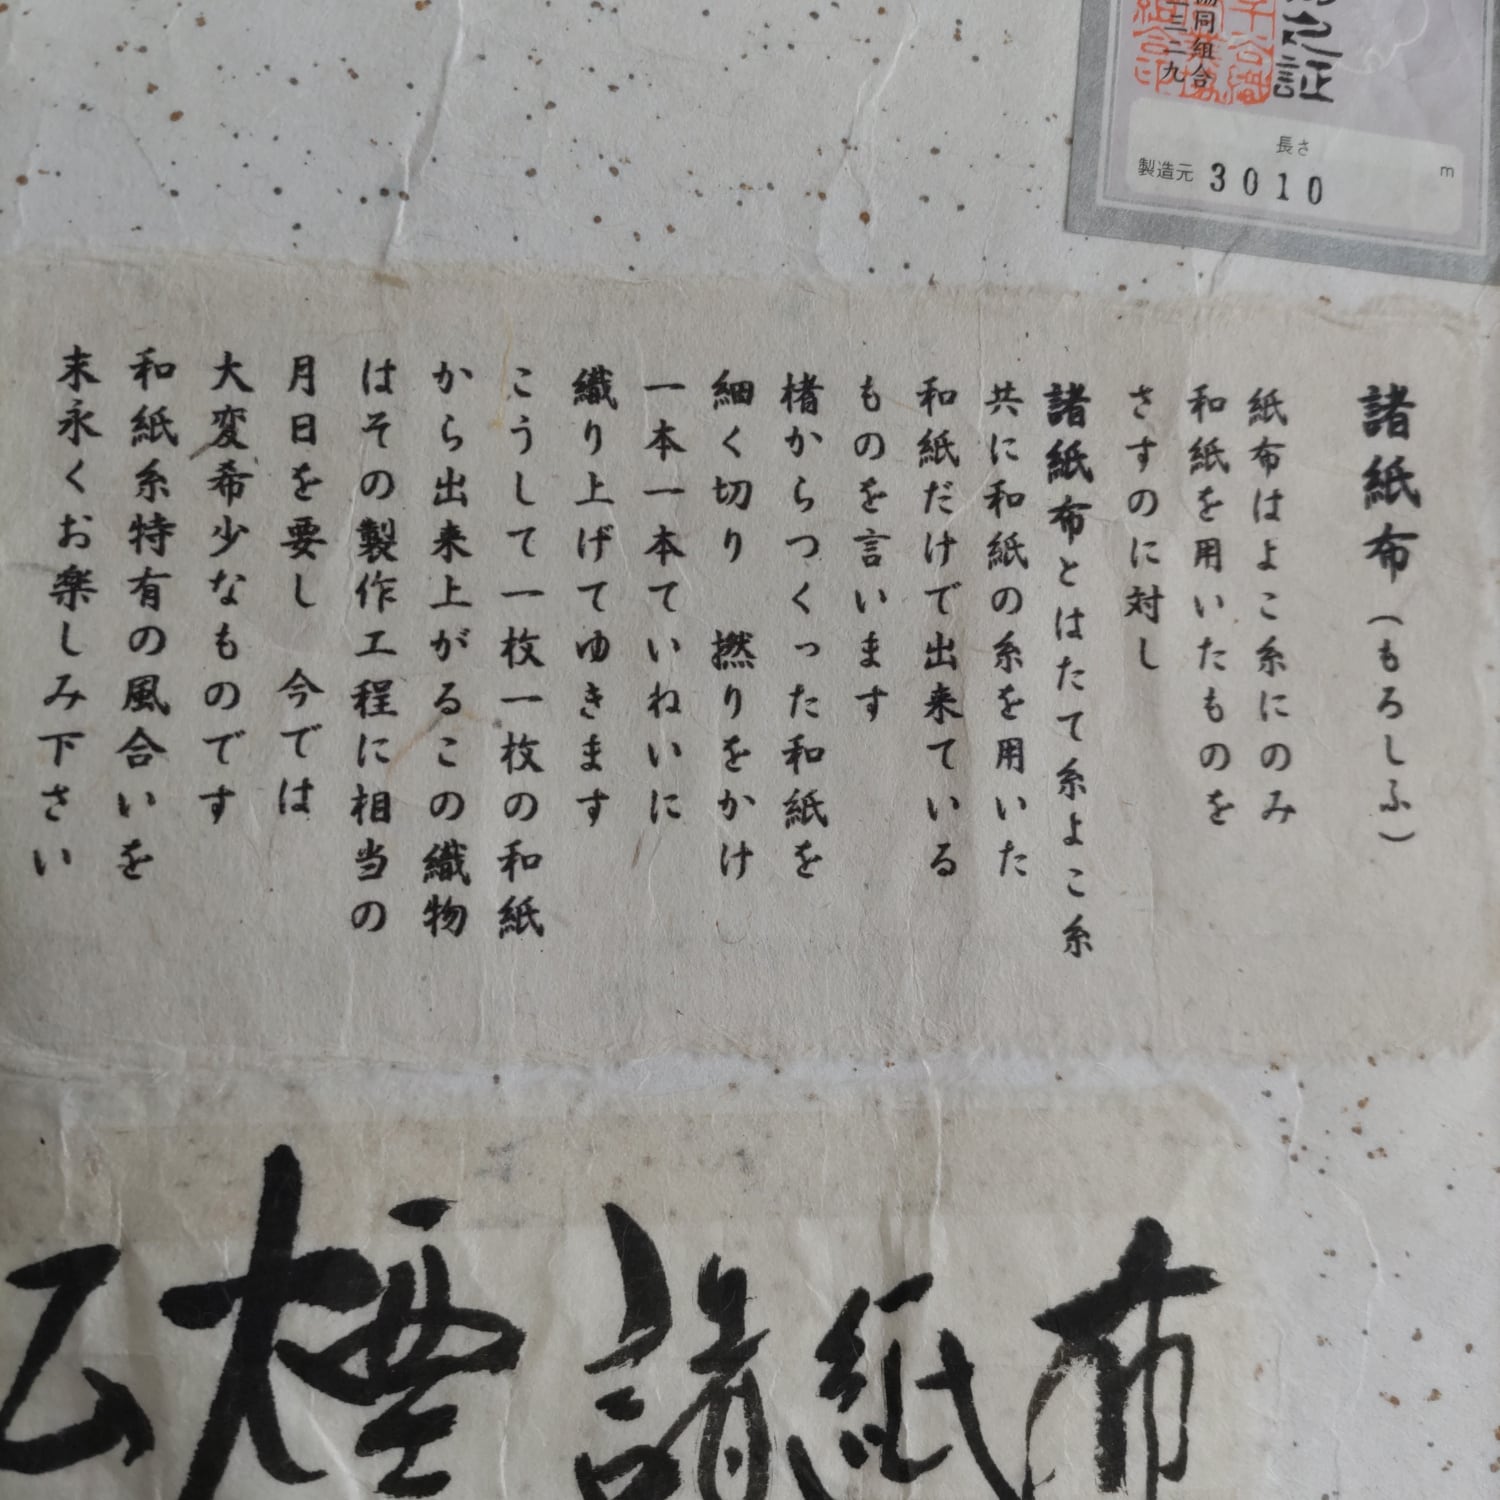 諸紙布（もろしふ）
紙布はよこ糸にのみ
和紙を用いたものを
さすのに対し
諸紙布とはたて糸よこ糸
共に和紙の糸を用いた
和紙だけで出来ている
ものを言います
楮からつくった和紙を
細く切り　撚りをかけ
一本一本ていねいに
織り上げてゆきます
こうして一枚一枚の和紙
から出来上がるこの織物
はその製作工程に相当の
月日を要し　今では
大変希少なものです
和紙糸特有の風合いを
末永くお楽しみ下さい
之証
協同組合
三二九
長さ
m
製造元 3010
煙諸紙布